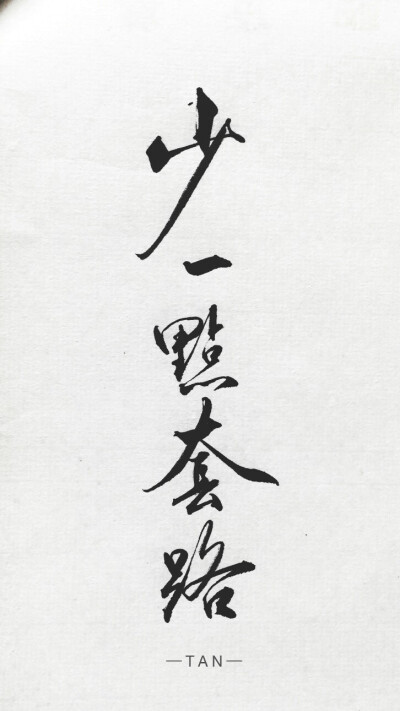 少一點套路
—TAN—